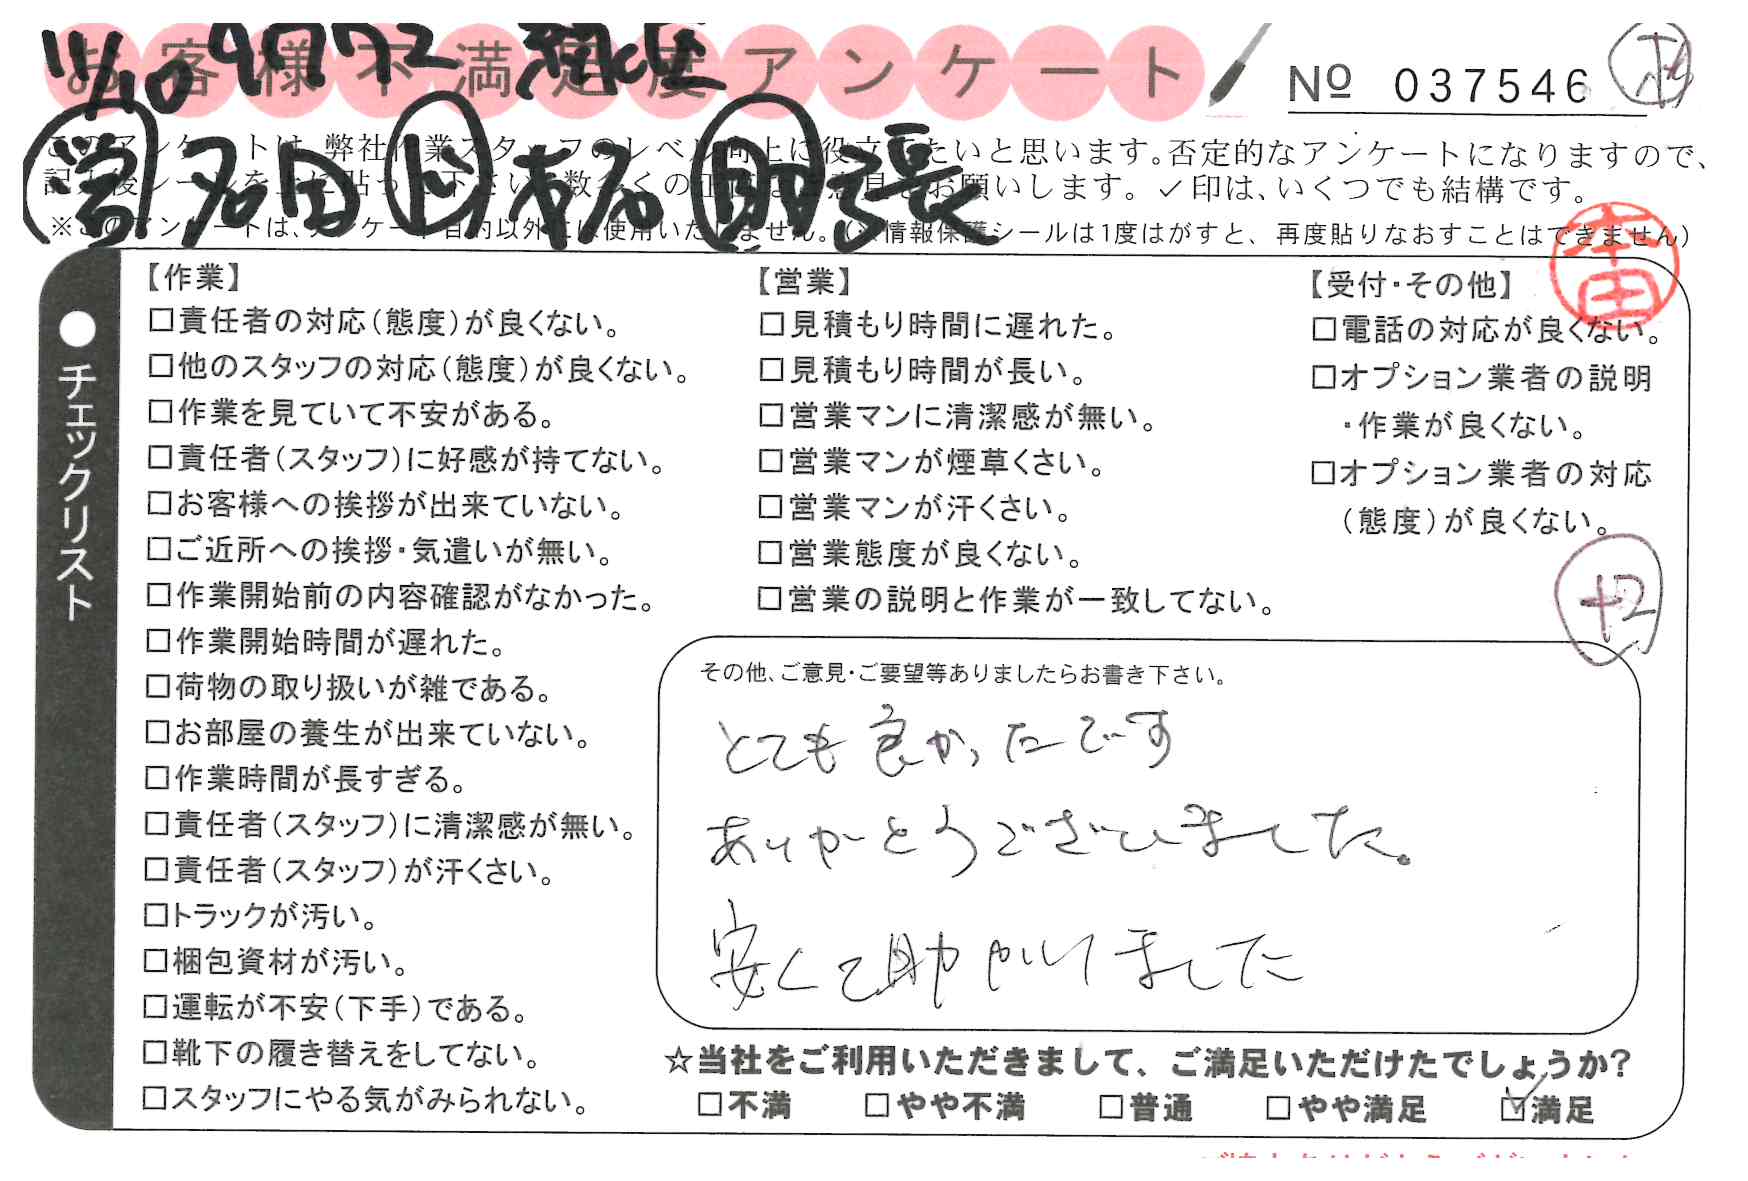 お客様不満足度アンケート
No 037546
11/10 9772
このアンケートは、弊社作業スタッフのレベル向上に役立てたいと思います。否定的なアンケートになりますので、
記入後シールを上に貼って下さい。数多くの正直なご意見をお願いします。✓印は、いくつでも結構です。
※このアンケートは、アンケート目的以外には使用いたしません。(※情報保護シールは1度はがすと、再度貼りなおすことはできません)
本田
●チェックリスト
【作業】
□責任者の対応(態度)が良くない。
□他のスタッフの対応(態度)が良くない。
□作業を見ていて不安がある。
□責任者(スタッフ)に好感が持てない。
□お客様への挨拶が出来ていない。
□ご近所への挨拶・気遣いが無い。
□作業開始前の内容確認がなかった。
□作業開始時間が遅れた。
□荷物の取り扱いが雑である。
□お部屋の養生が出来ていない。
□作業時間が長すぎる。
□責任者(スタッフ)に清潔感が無い。
□責任者(スタッフ)が汗くさい。
□トラックが汚い。
□梱包資材が汚い。
□運転が不安(下手)である。
□靴下の履き替えをしてない。
□スタッフにやる気がみられない。
【営業】
□見積もり時間に遅れた。
□見積もり時間が長い。
□営業マンに清潔感が無い。
□営業マンが煙草くさい。
□営業マンが汗くさい。
□営業態度が良くない。
□営業の説明と作業が一致してない。
【受付・その他】
□電話の対応が良くない。
□オプション業者の説明
・作業が良くない。
□オプション業者の対応
(態度)が良くない。
その他、ご意見・ご要望等ありましたらお書き下さい。
とても良かったです
ありがとうございました。
安くて助かりました
☆当社をご利用いただきまして、ご満足いただけたでしょうか?
□不満 □やや不満 □普通 □やや満足 ☑満足